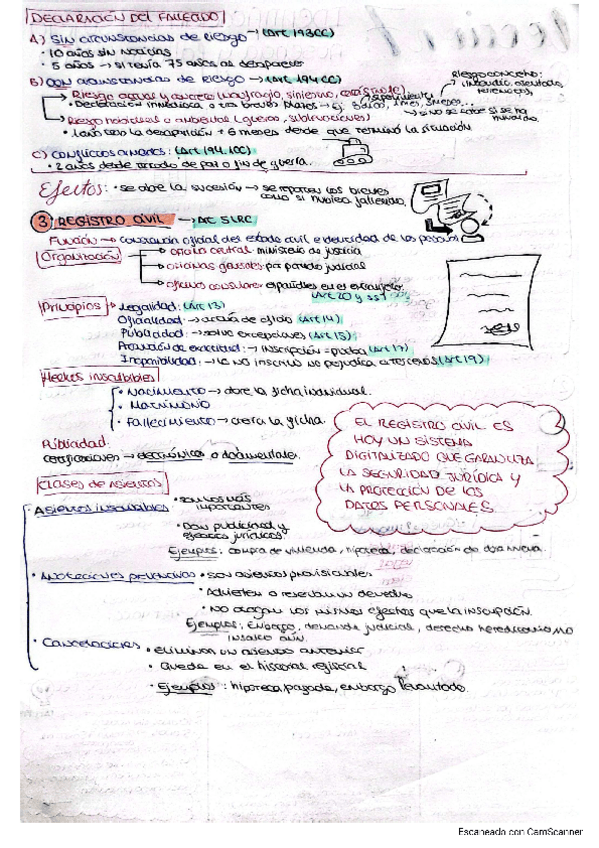 DECLARACIÓN DEL FALLECIDO
A) SIN circunstancias de riesgo → (Art 193CC)
• 10 años sin noticias
• 5 años → si tenía 75 años al desaparecer
B) CON circunstancias de riesgo → (Art 194CC)
Riesgo concreto:
Riesgo agudo y concreto (naufragio, siniestro,
• Declaración inmediata o tras breves plazos → Ej: 8 días, 1 mes, 3 meses...
Riesgo notorio (guerras, sublevaciones)
• 1 año tras la desaparición + 6 meses desde que terminó la situación.
C) Conflictos armados: (Art 194.1CC)
• 2 años desde tratado de paz o fin de guerra.
Efectos: • se abre la sucesión → se reparten los bienes
como si hubiera fallecido.
3 REGISTRO CIVIL → Art 5 LRC
Función → constancia oficial del estado civil e identidad de las personas
Organización
→ oficina central: ministerio de justicia
→ oficinas generales por partido judicial
→ oficinas consulares: españoles en el extranjero.
(Art 20 y ss)
Principios
Legalidad: (Art 13)
Oficialidad: → actúa de oficio (Art 14)
Publicidad: → salvo excepciones (Art 15)
Presunción de exactitud: → inscripción = prueba (Art 17)
Inoponibilidad: → lo no inscrito no perjudica a terceros (Art 19)
Hechos inscribibles
• Nacimiento → abre la ficha individual.
• Matrimonio
• Fallecimiento → cierra la ficha.
Publicidad:
certificaciones → electrónicas o documentales.
EL REGISTRO CIVIL ES
HOY UN SISTEMA
DIGITALIZADO QUE GARANTIZA
LA SEGURIDAD JURÍDICA Y
LA PROTECCIÓN DE LOS
DATOS PERSONALES
Clases de asientos
• Asientos inscribibles • son los más
importantes
• Dan publicidad y
efectos jurídicos
Ejemplos: compra de vivienda, hipoteca, declaración de obra nueva.
• Anotaciones preventivas • son asientos provisionales
• Advierten o reservan un derecho
• No otorgan los mismos efectos que la inscripción.
Ejemplos: Embargo, demanda judicial, derecho hereditario no
inscrito aún.
• Cancelaciones • eliminan un asiento anterior
• Queda en el historial registral
• Ejemplos: hipoteca pagada, embargo levantado.
Escaneado con CamScanner